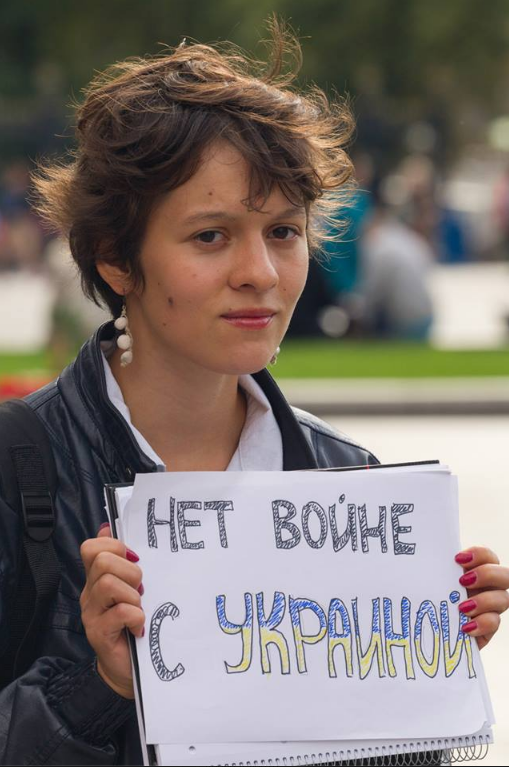 НЕТ ВОЙНЕ
С УКРАИНОЙ